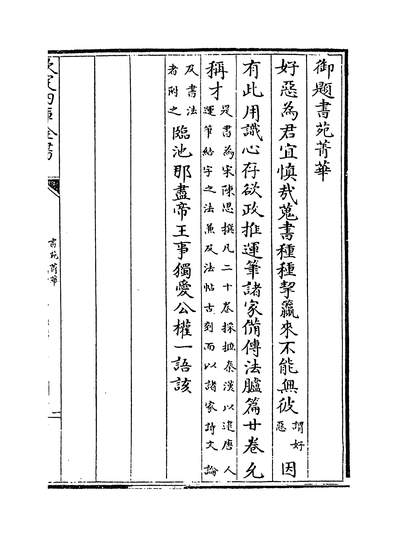 御題書苑菁華
好惡為君宜慎哉蒐書種種挈籯來不能無彼謂好惡因
有此用識心存欲政推運筆諸家備傳法臚篇廿卷允
稱才是書為宋陳思撰凡二十卷採摭秦漢以迄唐人運筆結字之法兼及法帖古刻而以諸家詩文論
及書法者附之臨池那盡帝王事獨愛公權一語該
欽定四庫全書
書苑菁華
二